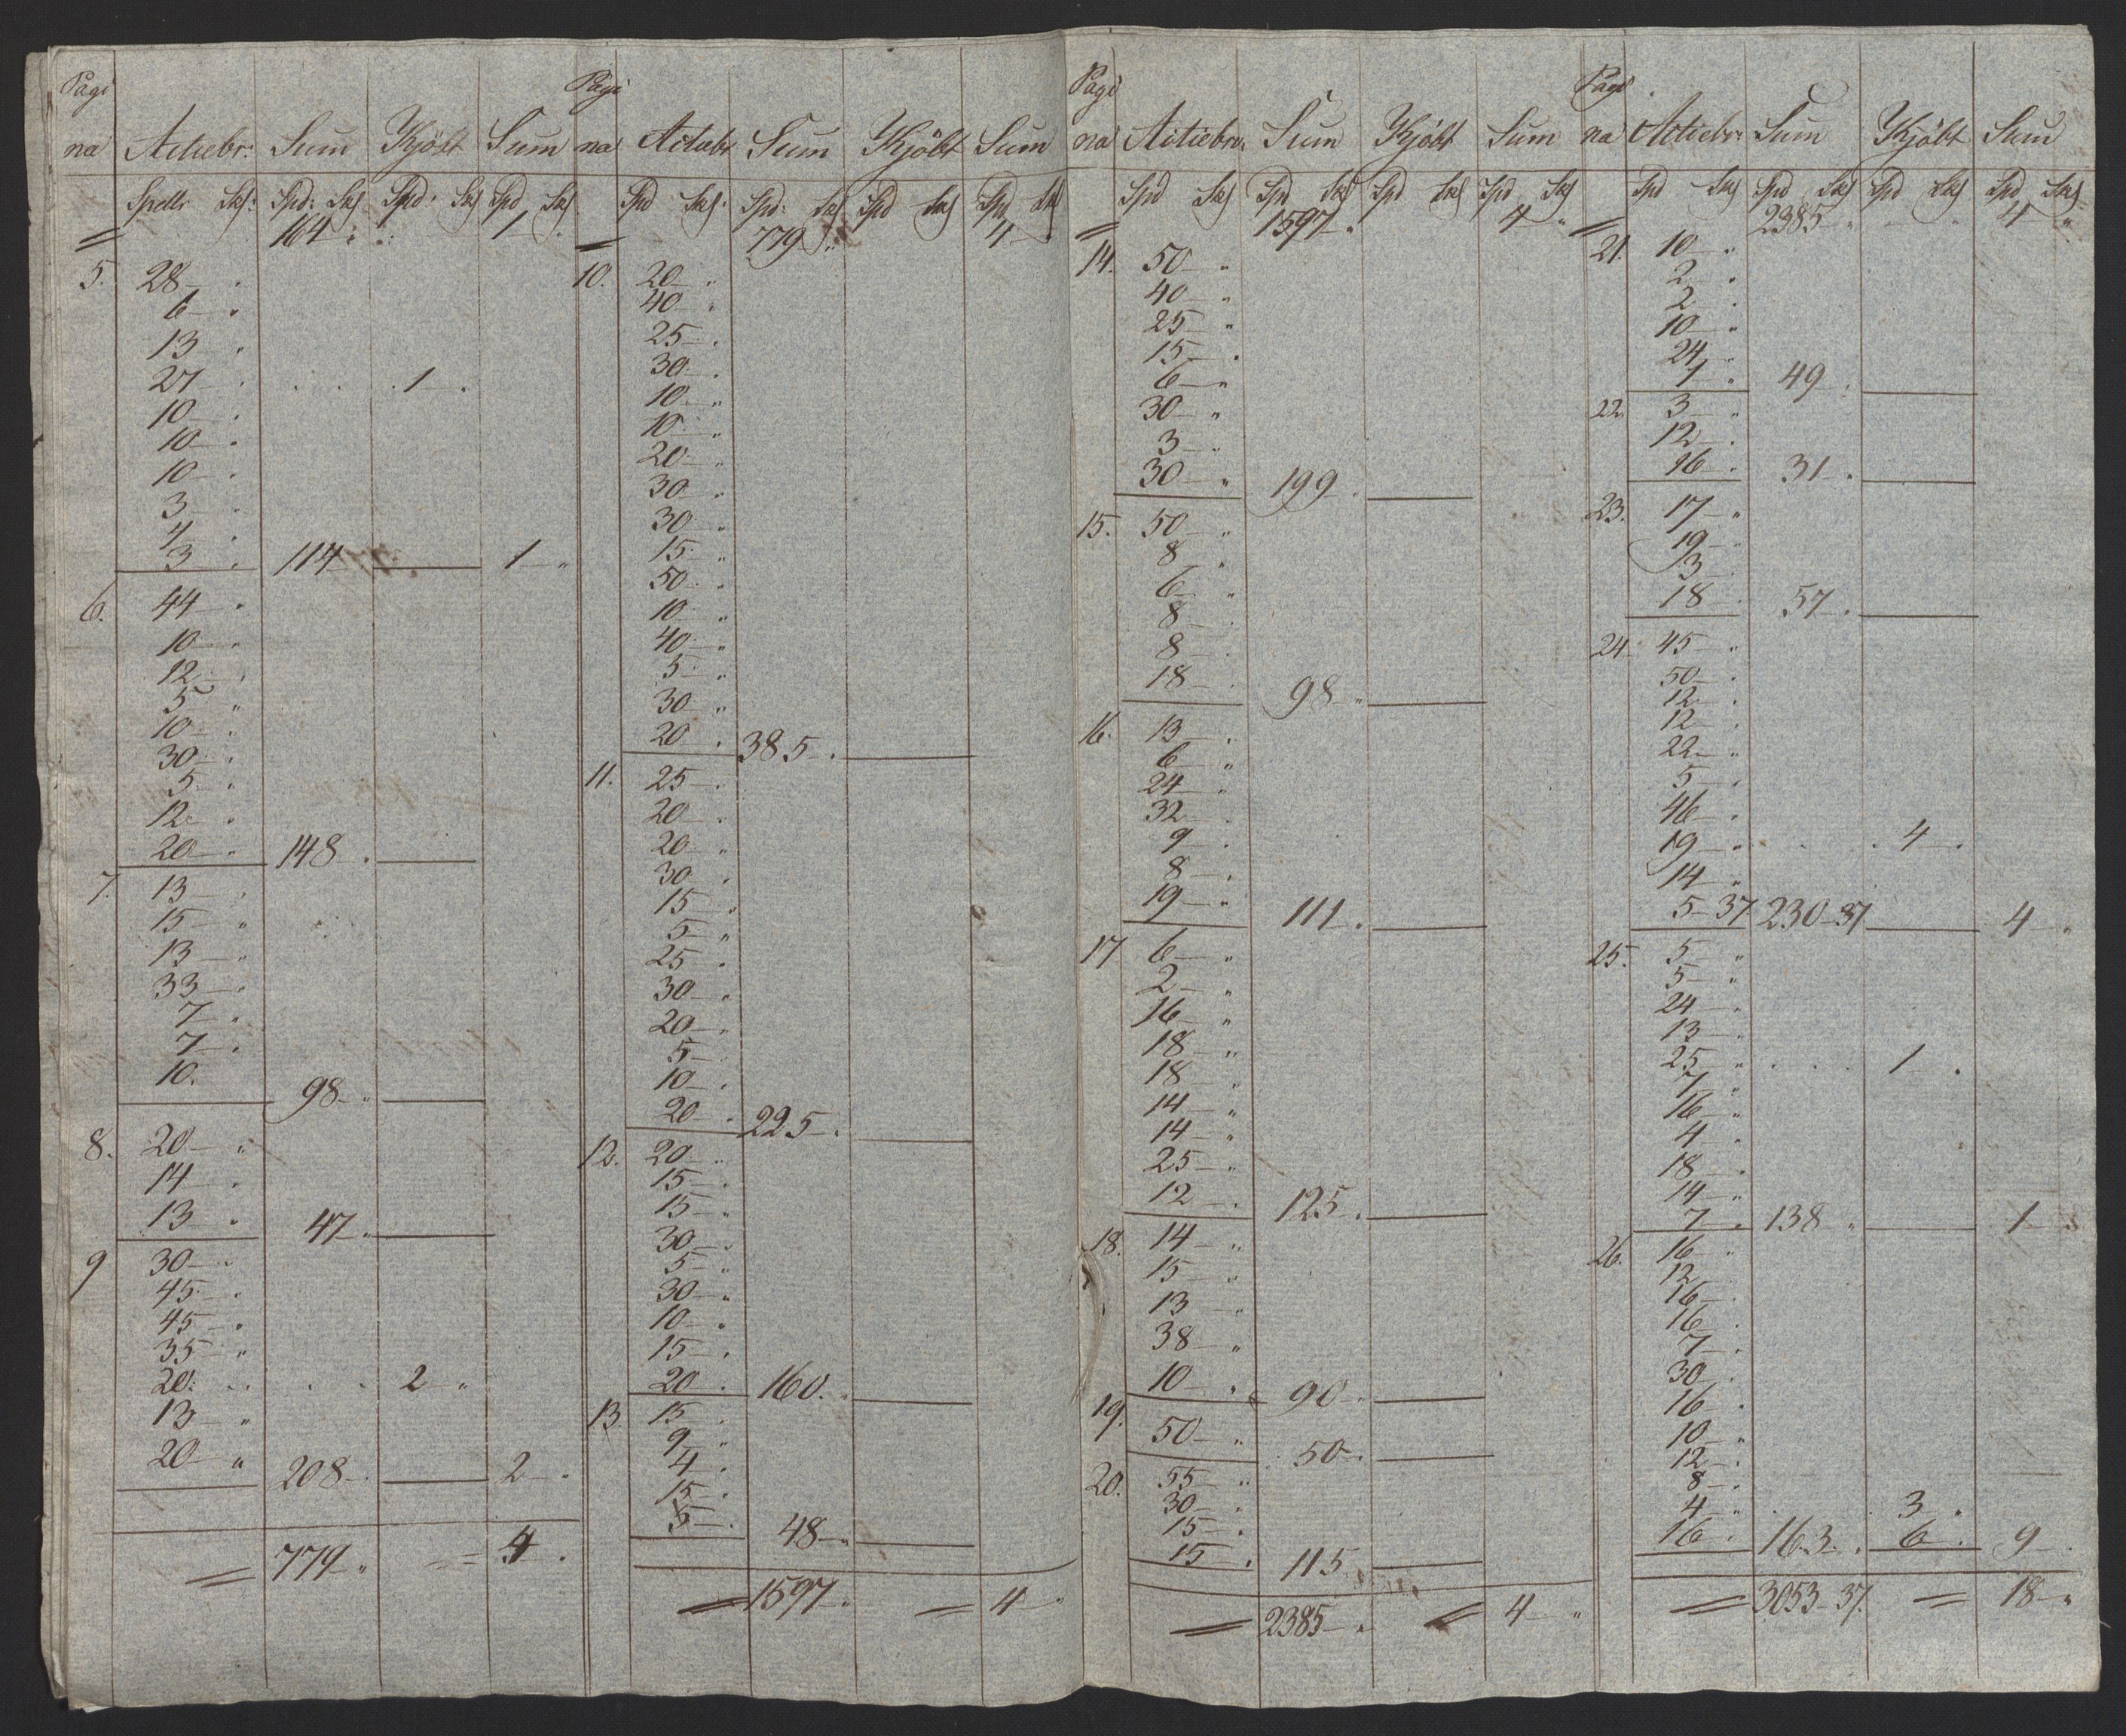 Pagina Actiebr: Sum Kjöbt Sum
Spdlr Sk: Spd: Sk Spd: Sk Spd Sk
= 164 " 1
5. 28 — "
6 — "
13 "
27 — " . . . 1 — .
10 — "
10 — "
10 — "
3 — "
4 "
3 — " 114 — 1 — "
6. 44 — "
10 — "
12 — "
5 — "
10 — "
30 — "
5 — "
12 — "
20 — " 148 . —
7. 13 — "
15 — "
13 — "
33 — "
7 — "
7 — "
10. 98 — " —
8. 20 — "
14 — "
13 — " 47 — " —
9 30 — "
45 — "
45 — "
35 — "
20: . . . . 2 "
13 — "
20 — " 208 — . — 2 — .
= 779 — " = 4 .
Pagina Actiebr Sum Kjöbt Sum
Spd Sk: Spd: Sk Spd Sk Spd Sk
= 779 " 4 —
10. 20 — "
40 "
25 — .
30 — .
10 — "
10 — "
20 — "
30 — .
30 — "
15 — "
50 — .
10 — "
40 — "
5 — "
30 — "
20 . 385 — . —
11. 25 — .
20 — .
20 — "
30 — .
15 — "
5 — "
25 — .
30 — "
20 — "
5 — .
10 — .
20 — . 225 — . —
12. 20 — "
15 — .
15 — .
30 — .
5 — "
30 — "
10 — "
15 — .
20 — . 160. " —
13. 15 — .
9 — "
4 — .
15 — .
5 — . 48 — " —
= 1597 — " = 4 — "
Pagina Actiebr: Sum Kjöbt Sum
Spd Sk Spd Sk Spd Sk Spd Sk
= 1597 — " 4 — "
14. 50 — "
40 — "
25 — "
15 — .
6 — "
30 — "
3 — .
30 — " 199 . —
15. 50 — "
8 — "
6 — "
8 — .
8 — .
18 — . 98 — " —
16. 13 — .
6 — "
24 — "
32 — .
9 — .
8 — .
19 — " 111 . —
17 6 — "
2 — "
16 — "
18 — "
18 — "
14 — "
14 — "
25 — "
12 — . 125 . —
18. 14 — "
15 — "
13 — "
38 — "
10 — . 90 — " —
19. 50 — " 50 — . —
20. 55 — "
30 — .
15 — .
15 — . 115 —
= 2385 — " = 4 — "
Pagina Actiebr: Sum Kjöbt Sum
Spd Sk Spd Sk Spd Sk Spd Sk
= 2385 — " 4 "
21. 10 — "
2 — "
2 — .
10 — "
24 "
1 — " 49 . —
22. 3 — "
12 — .
16 — . 31 — . —
23. 17 — "
19 — "
3 —
18 — . 57 . —
24. 45 — "
50 — .
12 — .
12 — .
22 — "
5 — "
46 — .
19 — " . . . 4 — .
14 — "
5 — 37 230 — 37 — 4 — "
25. 5 — "
5 — "
24 — "
13 — "
25 " . . . 1 — .
7 — "
16 — "
4 — "
18 — .
14 — "
7 — . 138 " — 1 —
26. 16 — "
12
16 — .
16 — .
7 — .
30 — .
16 — .
10 — "
12 — .
8 — .
4 — " . 3 .
16 — . 163 — . 6 . 9 .
= 3053 — 37. = 18 — "